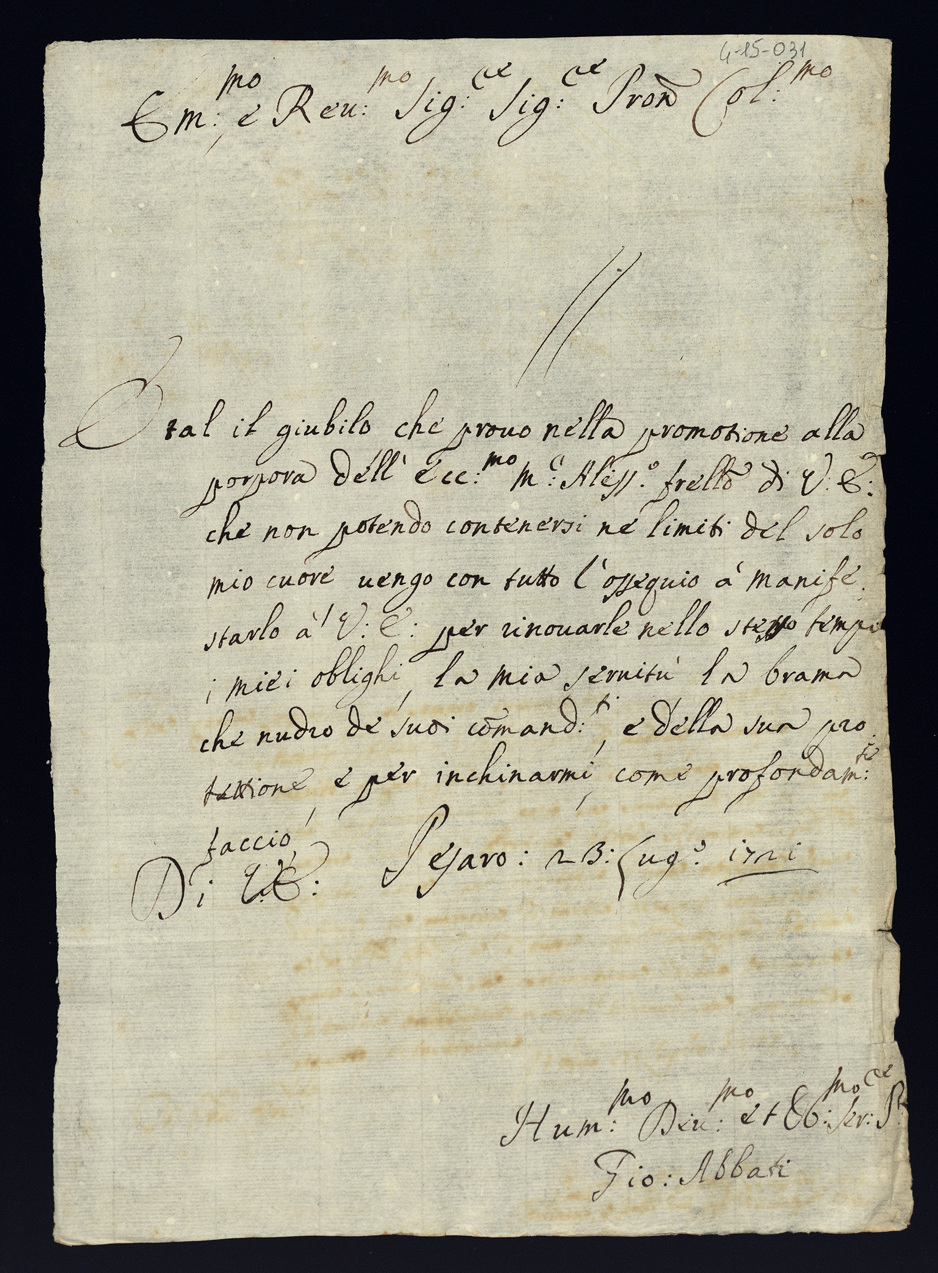 4-15-031
Em:mo, e Reu:mo Sig:re Sig:re Pron Col:mo
E tal il giubilo che prouo nella promotione alla
porpora dell' Ecc:mo M:r Aless:o frello di V: E:
che non potendo contenersi ne limiti del solo
mio cuore uengo con tutto l'ossequio à manife
starlo à V: E: per rinouarle nello stesso tempo
i miei oblighi, la mia seruitù la brama
che nudro de suoi comand:ti, e della sua pro
tettione, e per inchinarmi, come profondam:te
faccio,
Di V: E: Pesaro: 23: Lug:o 1721
Hum:mo Deu:mo et Ob:mo Ser:re
Gio: Abbati